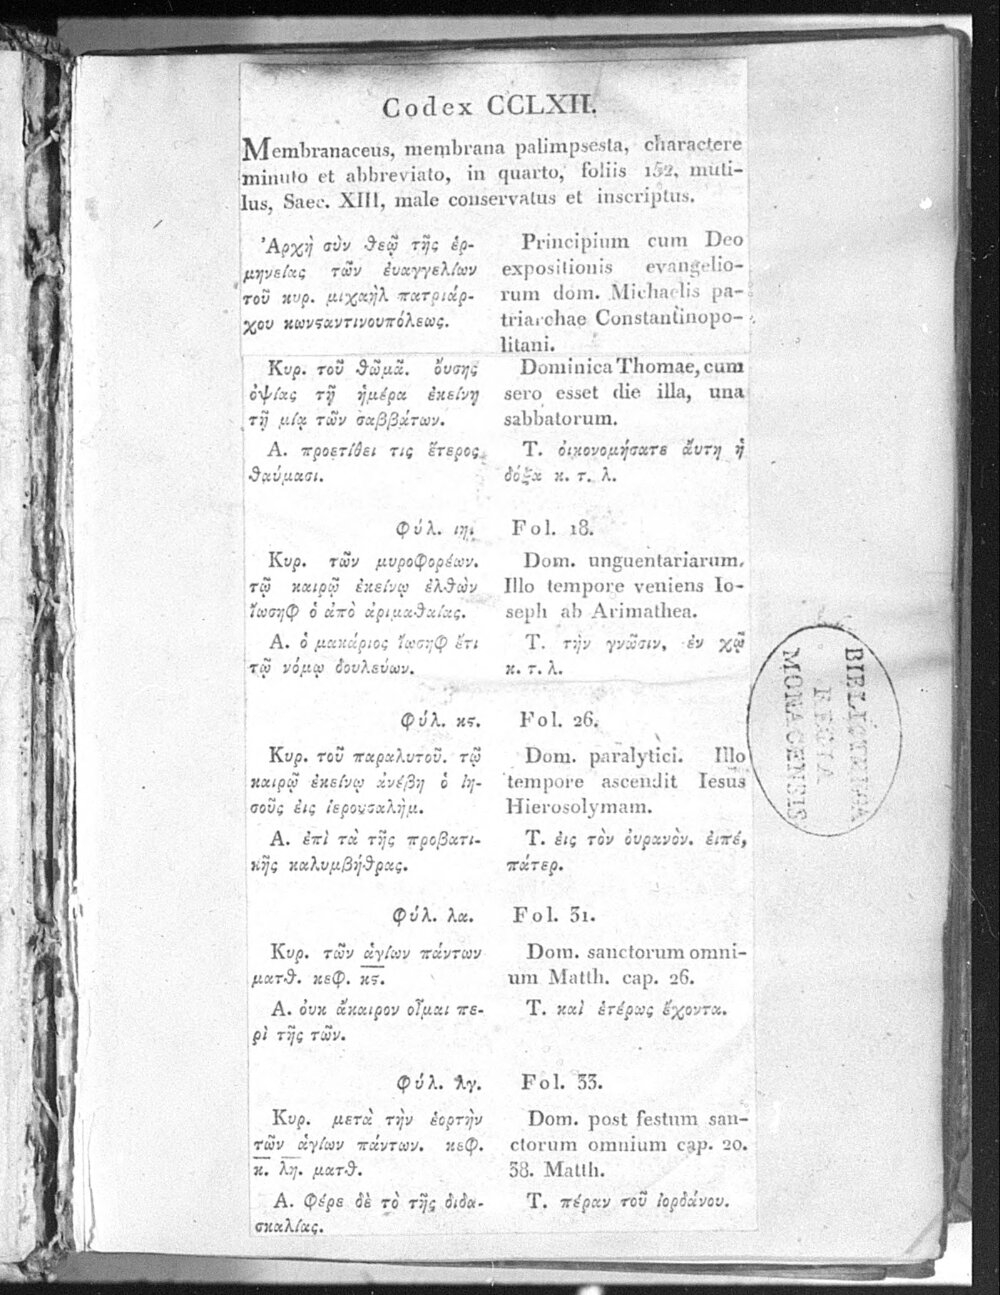 Codex CCLXII.
Membranaceus, membrana palimpsesta, charactere
minuto et abbreviato, in quarto, foliis 152, muti-
lus, Saec. XIII, male conservatus et inscriptus.
Ἀρχὴ σὺν θεῷ τῆς ἑρ-
μηνείας τῶν ἐυαγγελίων
τοῦ κυρ. μιχαὴλ πατριάρ-
χου κωνϛαντινουπόλεως.
Principium cum Deo
expositionis evangelio-
rum dom. Michaelis pa-
triarchae Constantinopo-
litani.
Κυρ. τοῦ θωμᾶ. ὄυσης
ὀψίας τῇ ἡμέρα ἐκείνη
τῇ μίᾳ τῶν σαββάτων.
Dominica Thomae, cum
sero esset die illa, una
sabbatorum.
Α. προετίθει τις ἕτερος
θαύμασι.
Τ. ὀικονομήσατε ἄυτη ἡ
δόξα κ. τ. λ.
Φύλ. ιη.
Fol. 18.
Κυρ. τῶν μυροφορέων.
τῷ καιρῷ ἐκείνῳ ἐλθὼν
ἴωσηφ ὁ ἀπὸ ἀριμαθαίας.
Dom. unguentariarum.
Illo tempore veniens Io-
seph ab Arimathea.
Α. ὁ μακάριος ἴωσηφ ἔτι
τῷ νόμῳ δουλεύων.
Τ. τὴν γνῶσιν, ἐν χῷ
κ. τ. λ.
Φύλ. κϛ.
Fol. 26.
Κυρ. τοῦ παραλυτοῦ. τῷ
καιρῷ ἐκείνῳ ἀνέβη ὁ ἰη-
σοῦς ἐις ἱερουσαλὴμ.
Dom. paralytici. Illo
tempore ascendit Iesus
Hierosolymam.
Α. ἐπὶ τὰ τῆς προβατι-
κῆς καλυμβήθρας.
Τ. ἐις τὸν ὀυρανὸν. ἐιπέ,
πάτερ.
Φύλ. λα.
Fol. 31.
Κυρ. τῶν ἁγίων πάντων
ματθ. κεφ. κϛ.
Dom. sanctorum omni-
um Matth. cap. 26.
Α. ὀυκ ἄκαιρον οἶμαι πε-
ρὶ τῆς τῶν.
Τ. καὶ ἑτέρως ἔχοντα.
Φύλ. λγ.
Fol. 33.
Κυρ. μετὰ τὴν ἑορτὴν
τῶν ἁγίων πάντων. κεφ.
κ. λη. ματθ.
Dom. post festum san-
ctorum omnium cap. 20.
38. Matth.
Α. Φέρε δὲ τὸ τῆς διδα-
σκαλίας.
Τ. πέραν τοῦ ἰορδάνου.
BIBLIOTHECA
REGIA
MONACENSIS